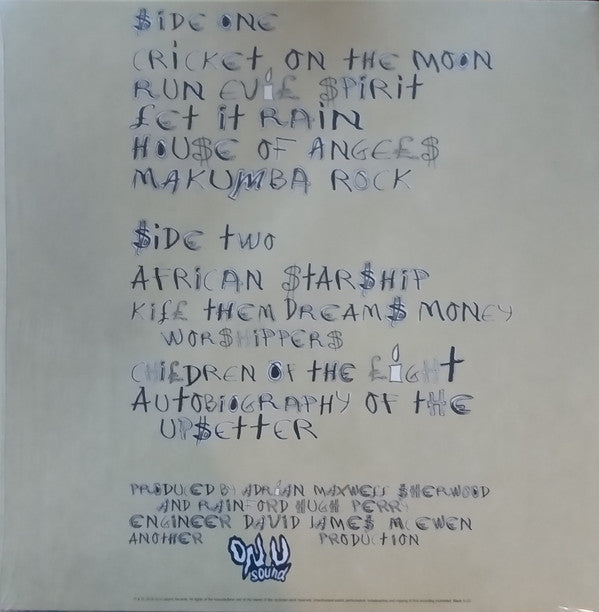 $iDE ONE
CRiCKEt ON tHE MOON
RUN EViL $PiRit
£Et it RAiN
HOU$E OF ANGE£$
MAKUMBA ROCK
$iDE tWO
AFRiCAN $tAR$HiP
Ki££ tHEM DREAM$ MONEY
WOR$HiPPER$
CHi£DREN OF tHE £iGHt
AUtOBiOGRAPHY OF tHE
UP$EttER
PRODUCED BY ADRiAN MAXWE££ $HERWOOD
AND RAiNFORD HUGH PERRY
ENGiNEER DAViD JAME$ MCEWEN
ANOtHER ON.U SOUND PRODUCtiON